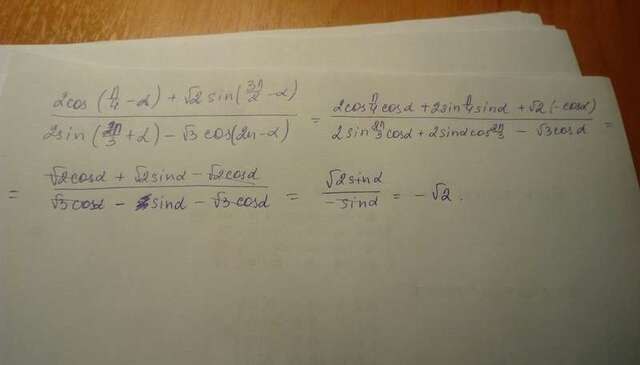 (2cos(π/4 - α) + √2 sin(3π/2 - α)) / (2sin(2π/3 + α) - √3 cos(2π - α)) = (2cos π/4 cosα + 2sin π/4 sinα + √2(-cosα)) / (2sin 2π/3 cosα + 2sinα cos 2π/3 - √3cosα) =
= (√2cosα + √2sinα - √2cosα) / (√3cosα - sinα - √3cosα) = (√2sinα) / (-sinα) = -√2.